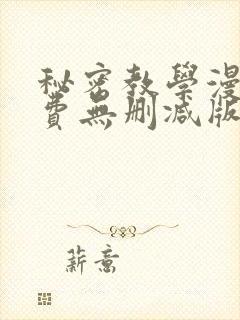 秘密教學漫
費無刪減版
薪意